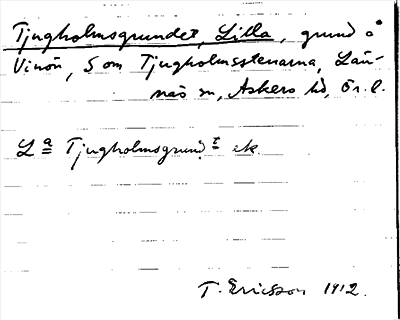 Tjugholmsgrundet, Lilla, grund å
Vinön, S om Tjugholmsstenarna, Län-
näs sn, Askers hd, Ör. l.
L<sup>a</sup> Tjugholmsgrund<sup>t</sup> ek
T. Ericsson 1912.